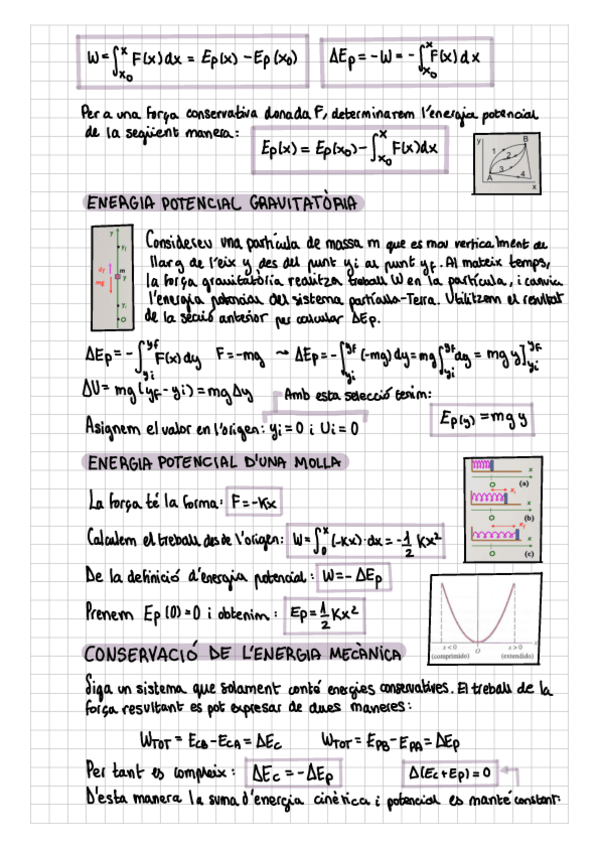 W = ∫x₀ˣ F(x) dx = Ep(x) − Ep(x₀)    ΔEp = −W = −∫x₀ˣ F(x) dx
Per a una força conservativa donada F, determinarem l'energia potencial
de la següent manera:
Ep(x) = Ep(x₀) − ∫x₀ˣ F(x)dx
y B 1 2 3 A 4 x
ENERGIA POTENCIAL GRAVITATÒRIA
y yf dy m y mg yi O
Considereu una partícula de massa m que es mou verticalment al
llarg de l'eix y des del punt yi al punt yf. Al mateix temps,
la força gravitatòria realitza treball W en la partícula, i canvia
l'energia potencial del sistema partícula-Terra. Utilitzem el resultat
de la secció anterior per calcular ΔEp.
ΔEp = −∫yiʸᶠ F(x) dy    F = −mg → ΔEp = −∫yiʸᶠ (−mg) dy = mg ∫yiʸᶠ dy = mg y]yiʸᶠ
ΔU = mg (yf − yi) = mg Δy    Amb esta selecció tenim:
Assignem el valor en l'origen: yi = 0 i Ui = 0    Ep(y) = mg y
ENERGIA POTENCIAL D'UNA MOLLA
La força té la forma: F = −Kx
Calculem el treball des de l'origen: W = ∫₀ˣ (−Kx)·dx = −1/2 Kx²
x O (a)
x O (b)
x O (c)
De la definició d'energia potencial: W = −ΔEp
Prenem Ep (0) = 0 i obtenim: Ep = 1/2 Kx²
x < 0 O x > 0 x
(comprimido) (extendido)
CONSERVACIÓ DE L'ENERGIA MECÀNICA
Siga un sistema que solament conté energies conservatives. El treball de la
força resultant es pot expresar de dues maneres:
WTOT = ECB − ECA = ΔEc    WTOT = EPB − EPA = ΔEp
Per tant es compleix: ΔEc = −ΔEp    Δ(Ec + Ep) = 0
D'esta manera la suma d'energia cinètica i potencial es manté constant: